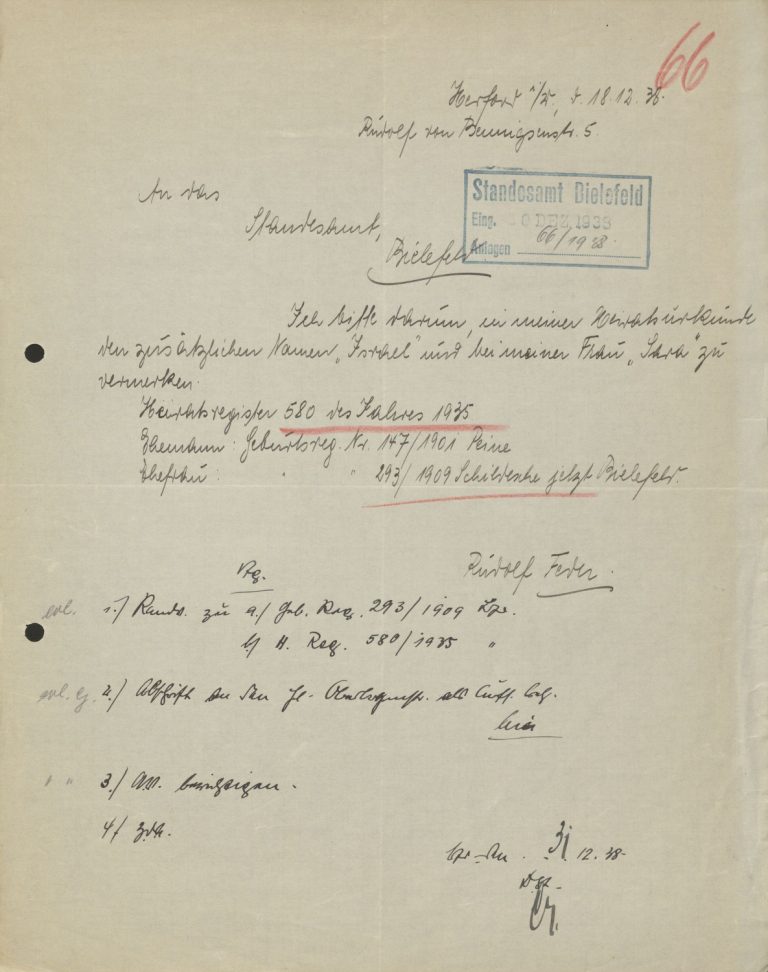 66
Herford i/W, d. 18.12.38.
Rudolf von Bennigsenstr. 5.
An das
Standesamt,
Bielefeld
Standesamt Bielefeld
Eing. 0 DEZ 1938
Anlagen 66/1938
Ich bitte darum, in meiner Heiratsurkunde
den zusätzlichen Namen „Israel" und bei meiner Frau „Sara" zu
vermerken.
Heiratsregister 580 des Jahres 1935
Ehemann: Geburtsreg. Nr. 147/1901 Peine
Ehefrau: " " 293/1909 Schildesche jetzt Bielefeld.
Rudolf Feder.
Vfg.
erl. 1./ Randv. zu a./ Geb. Reg. 293/1909
b/ H. Reg. 580/1935 "
erl. 2./ Abschrift an den
hier
" " 3./ berichtigen.
4/ z.d.A.
31. 12. 38.